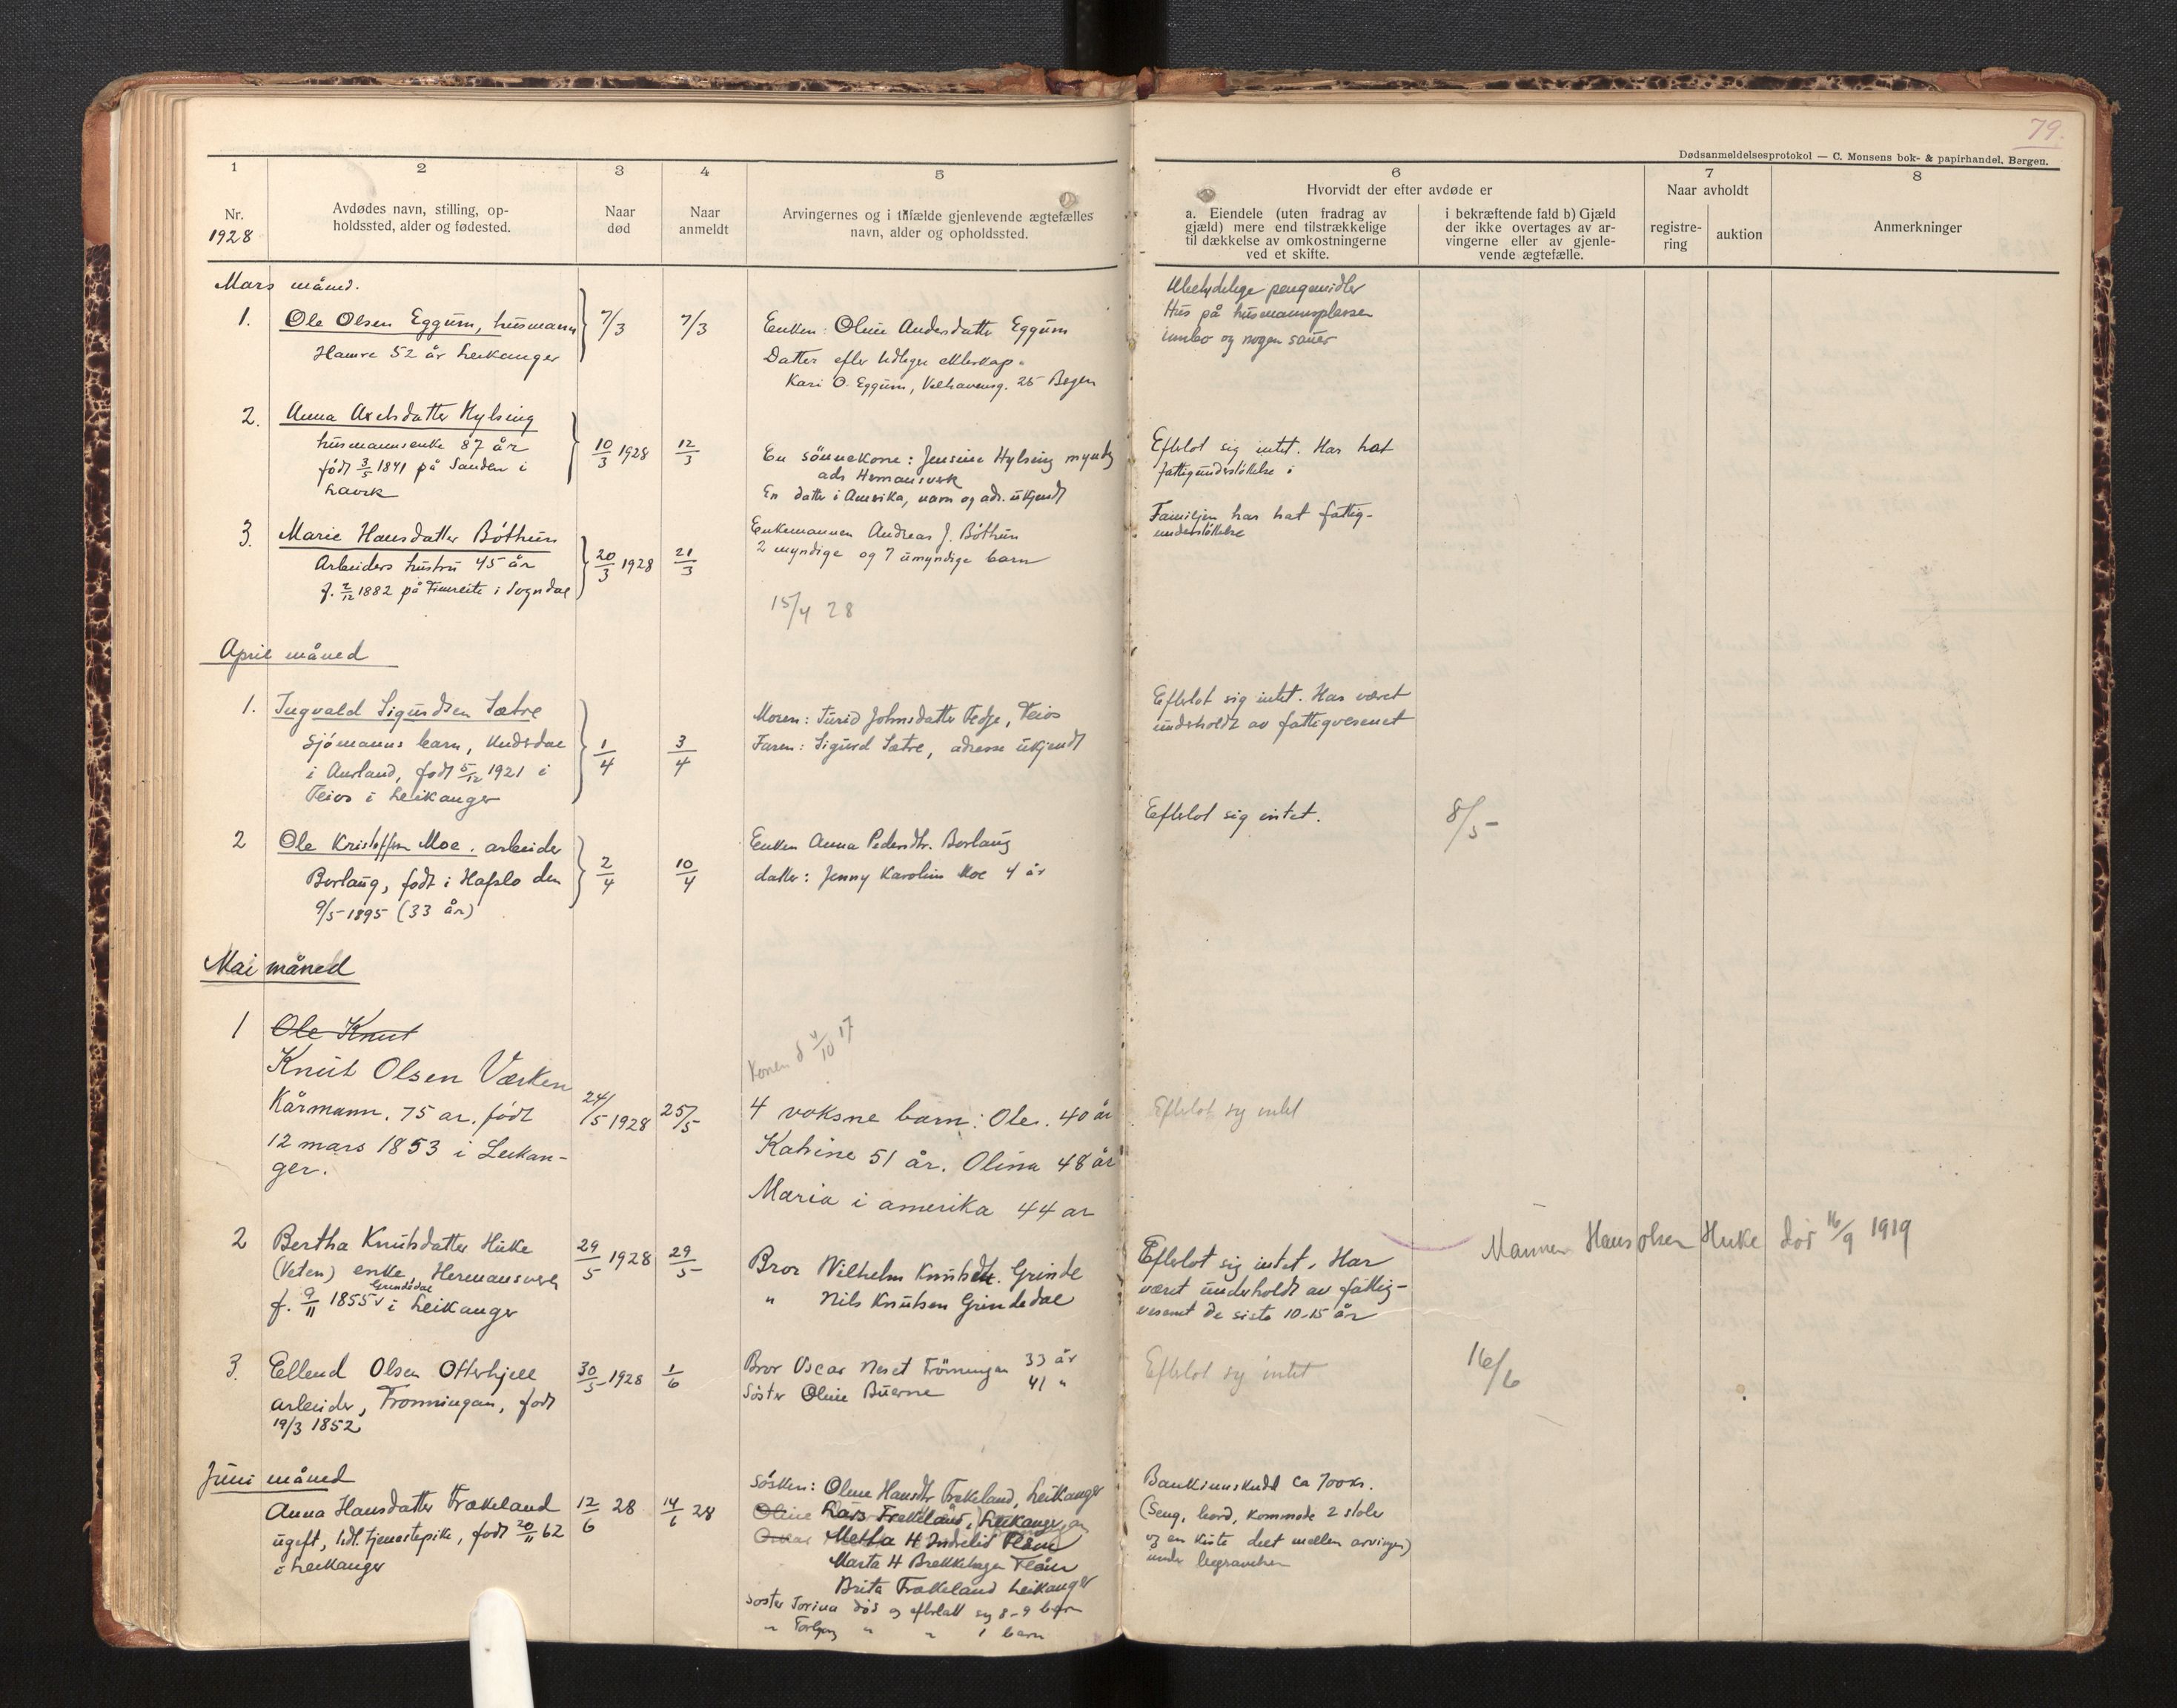 79.
Dødsanmeldelsesprotokol — C. Monsens bok- & papirhandel, Bergen.
1
2
3
4
5
6
7
8
Nr.
1928
Avdødes navn, stilling, op-
holdssted, alder og fødested.
Naar
død
Naar
anmeldt
Arvingernes og i tilfælde gjenlevende ægtefælles
navn, alder og opholdssted.
Hvorvidt der efter avdøde er
a. Eiendele (uten fradrag av
gjæld) mere end tilstrækkelige
til dækkelse av omkostningerne
ved et skifte.
i bekræftende fald b) Gjæld
der ikke overtages av ar-
vingerne eller av gjenle-
vende ægtefælle.
Naar avholdt
registre-
ring
auktion
Anmerkninger
Mars måned.
1. Ole Olsen Eggum, husmann
Hamre 52 år Leikanger
7/3
7/3
Enken: Oline Andersdatter Eggum
Datter efter tidligere ekteskap.
Kari O. Eggum, Welhavensg. 25 Bergen
Ubetydelige pengemidler
Hus på husmannsplassen
innbo og nogen sauer
2. Anna Axelsdatter Nybsing
husmannsenke 87 år
født 3/5 1841 på Sanden i
Lavik
10/3 1928
12/3
En sönnekone: Jensine Hylsing myndig
ads Hermansverk
En datter i Amerika, navn og adr. ukjendt
Efterlot sig intet. Har hat
fattigunderstöttelse i
3. Marie Hansdatter Böthun
Arbeiders hustru 45 år
f. 2/12 1882 på Fimreite i Sogndal
20/3 1928
21/3
Enkemannen Andreas J. Böthun
2 myndige og 7 umyndige barn
15/4 28
Familjen har hat fattig-
understöttelse
April måned
1. Ingvald Sigurdsen Sætre
Sjömanns barn, Undsdal
i Aurland, født 5/12 1921 i
Feios i Leikanger
1/4
3/4
Moren: Turid Johnsdatter Fedje, Feios
Faren: Sigurd Sætre, adresse ukjendt
Efterlot sig intet. Har været
underholdt av fattigvesenet
2 Ole Kristoffersen Moe. arbeider
Borlaug, født i Hafslo den
9/5-1895 (33 år)
2/4
10/4
Enken Anna Pedersdtr. Borlaug
datter: Jenny Karoline Moe 4 år
Efterlot sig intet.
8/5
Mai måned
1 Ole Knut
Knut Olsen Værken
Kårmann. 75 ar. født
12 mars 1853 i Leikan-
ger.
24/5 1928
25/5
Konen d 4/10 17
4 voksne barn: Ole. 40 år
Katrine 51 år. Olina 48 år
Maria i amerika 44 ar
Efterlot sig intet
2 Bertha Knutsdatter Huke
(Veten) enke, Hermansverk
Grindedal
f. 9/11 1855 i Leikanger
29/5 1928
29/5
Bror Wilhelm Knutsen. Grinde
" Nils Knutsen Grindedal
Efterlot sig intet. Har
været underholdt av fattig-
vesenet de siste 10-15 år
Mannen Hans Olsen Huke død 16/9 1919
3. Ellend Olsen Otterhjell
arbeider, Fronningan, født
19/3 1852
30/5 1928
1/6
Bror Oscar Neset Frönningan 33 år
Söster Oline Buerne 41 "
Efterlot sig intet
16/6
Juni måned
Anna Hansdatter Frækeland
ugift, tidl. tjenestepike, født 20/11 62
i Leikanger
12/6 28
14/6 28
Sösken: Oline Hansdtr Frækeland, Leikanger
Oline Lars Frækeland, Leikanger
Oscar Metha H Indrelid Flåm
Marta H Brekkhagen Flåm
Brita Frækeland Leikanger
Soster Torina död og efterlatt sig 8-9 barn
" " " 1 barn
Bankinnskudd ca 700 kr.
(Seng, bord, kommode 2 stoler
og en kiste delt mellem arvinger)
under begravelsen